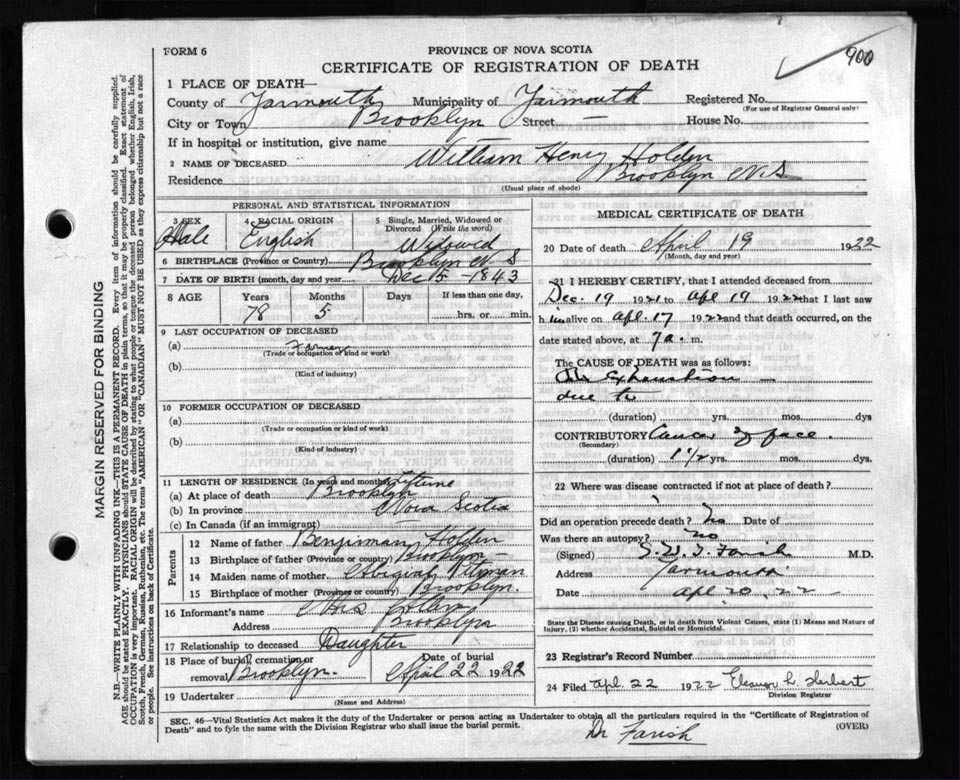 FORM 6
PROVINCE OF NOVA SCOTIA
900
CERTIFICATE OF REGISTRATION OF DEATH
1 PLACE OF DEATH—
County of Yarmouth Municipality of Yarmouth Registered No.
(For use of Registrar General only)
City or Town Brooklyn Street — House No.
If in hospital or institution, give name
2 NAME OF DECEASED William Henry Holden
Residence Brooklyn N.S
(Usual place of abode)
PERSONAL AND STATISTICAL INFORMATION
3 SEX 4 RACIAL ORIGIN 5 Single, Married, Widowed or Divorced (Write the word)
Male English Widowed
6 BIRTHPLACE (Province or Country) Brooklyn N S
7 DATE OF BIRTH (month, day and year) Dec 15 - 1843
8 AGE Years Months Days If less than one day,
78 5 hrs. or min.
9 LAST OCCUPATION OF DECEASED
(a) Farmer
(Trade or occupation or kind or work)
(b)
(Kind of industry)
10 FORMER OCCUPATION OF DECEASED
(a)
(Trade or occupation or kind or work)
(b)
(Kind of industry)
11 LENGTH OF RESIDENCE (In years and months) Lifetime
(a) At place of death Brooklyn
(b) In province Nova Scotia
(c) In Canada (if an immigrant)
Parents
12 Name of father Benjiman Holden
13 Birthplace of father (Province or country) Brooklyn —
14 Maiden name of mother Abigail Pitman
15 Birthplace of mother (Province or country) Brooklyn.
16 Informant's name Mrs Allen
Address Brooklyn
17 Relationship to deceased Daughter
18 Place of burial, cremation or removal Brooklyn. Date of burial April 22 1922
19 Undertaker
(Name and Address)
MEDICAL CERTIFICATE OF DEATH
20 Date of death April 19 1922
(Month, day and year)
21 I HEREBY CERTIFY, that I attended deceased from
Dec. 19 1921 to Apl 19 1922 that I last saw
h im alive on Apl. 17 1922 and that death occurred, on
date stated above, at 7 a. m.
The CAUSE OF DEATH was as follows:
Exhaustion —
due to
(duration) yrs. mos. dys
CONTRIBUTORY Cancer of face.
(Secondary)
(duration) 1 1/2 yrs. mos. dys.
22 Where was disease contracted if not at place of death?
?
Did an operation precede death? No Date of
Was there an autopsy? No
(Signed) Farish M.D.
Address Yarmouth
Date Apl 20, 22
State the Disease causing Death, or in death from Violent Causes, state (1) Means and Nature of
Injury, (2) whether Accidental, Suicidal or Homicidal.
23 Registrar's Record Number
24 Filed Apl 22 1922 Eleanor L. Herbert
Division Registrar
SEC. 46—Vital Statistics Act makes it the duty of the Undertaker or person acting as Undertaker to obtain all the particulars required in the "Certificate of Registration of
Death" and to fyle the same with the Division Registrar who shall issue the burial permit.
(OVER)
Dr Farish
MARGIN RESERVED FOR BINDING
N.B.—WRITE PLAINLY WITH UNFADING INK—THIS IS A PERMANENT RECORD. Every item of information should be carefully supplied.
AGE should be stated EXACTLY. PHYSICIANS should STATE CAUSE OF DEATH in plain terms, so that it may be properly classified. Exact statement of
OCCUPATION is very important. RACIAL ORIGIN will be described by stating to what people or tongue the deceased person belonged whether English, Irish,
Scotch, French, German, Russian, Ruthenian, etc. The terms "AMERICAN" OR "CANADIAN" MUST NOT BE USED as they express citizenship but not a race
or people. See instructions on back of Certificate.